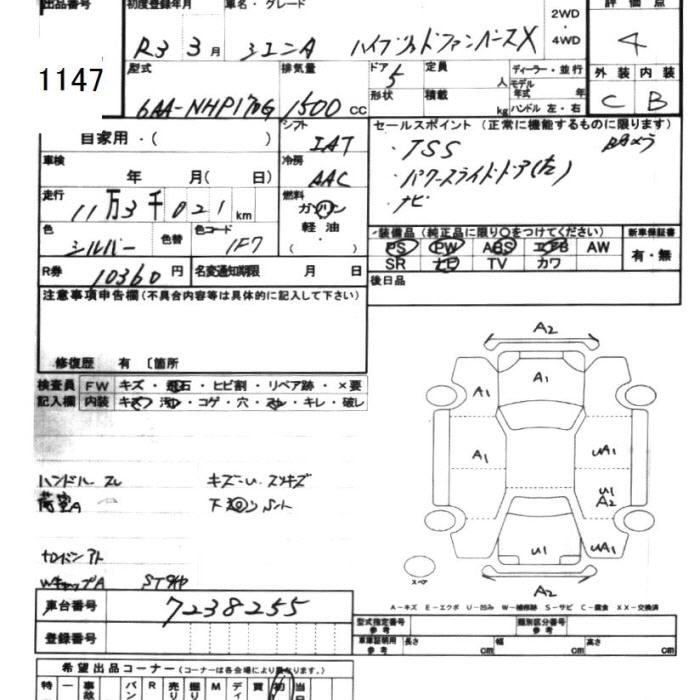 出品番号 初度登録年月 車名・グレード 2WD 4WD 評価点
1147 R3 3月 シエンタ ハイブリッドファンベースX 4
型式 排気量 ドア 5 定員 人 ディーラー・並行 外装 内装
6AA-NHP170G 1500 cc 形状 積載 kg モデル年式 年 ハンドル 左・右 C B
自家用・( ) シフト IAT セールスポイント (正常に機能するものに限ります)
車検 年 月( 日) 冷房 AAC ・TSS Bカメラ
走行 11万3千021km 燃料 ガソリン 軽油 ( ) ・パワースライドドア(左)
・ナビ
色 シルバー 色替 色コード 1F7
装備品 (純正品に限り○をつけてください) 新車保証書
PS PW ABS エアB AW 有・無
SR ナビ TV カワ
R券 10360円 名変通知期限 月 日 後日品
注意事項申告欄 (不具合内容等は具体的に記入して下さい)
修復歴 有 〔箇所
検査員 FW キズ・飛石・ヒビ割・リペア跡・×要
記入欄 内装 キズ・汚レ・コゲ・穴・スレ・キレ・破レ
ハンドル スレ
荷室A
WキャップA
A2
A1 A1
A1 UA1
U1 A2
U1 UA1
A2
スペア
A-キズ E-エクボ U-凹み W-補修跡 S-サビ C-腐食 XX-交換済
車台番号 7238255
登録番号
型式指定番号 参考 類別区分番号 参考
車庫証明用 参考 長さ cm 幅 cm 高さ cm
希望出品コーナー (コーナーは各会場により異なります。)